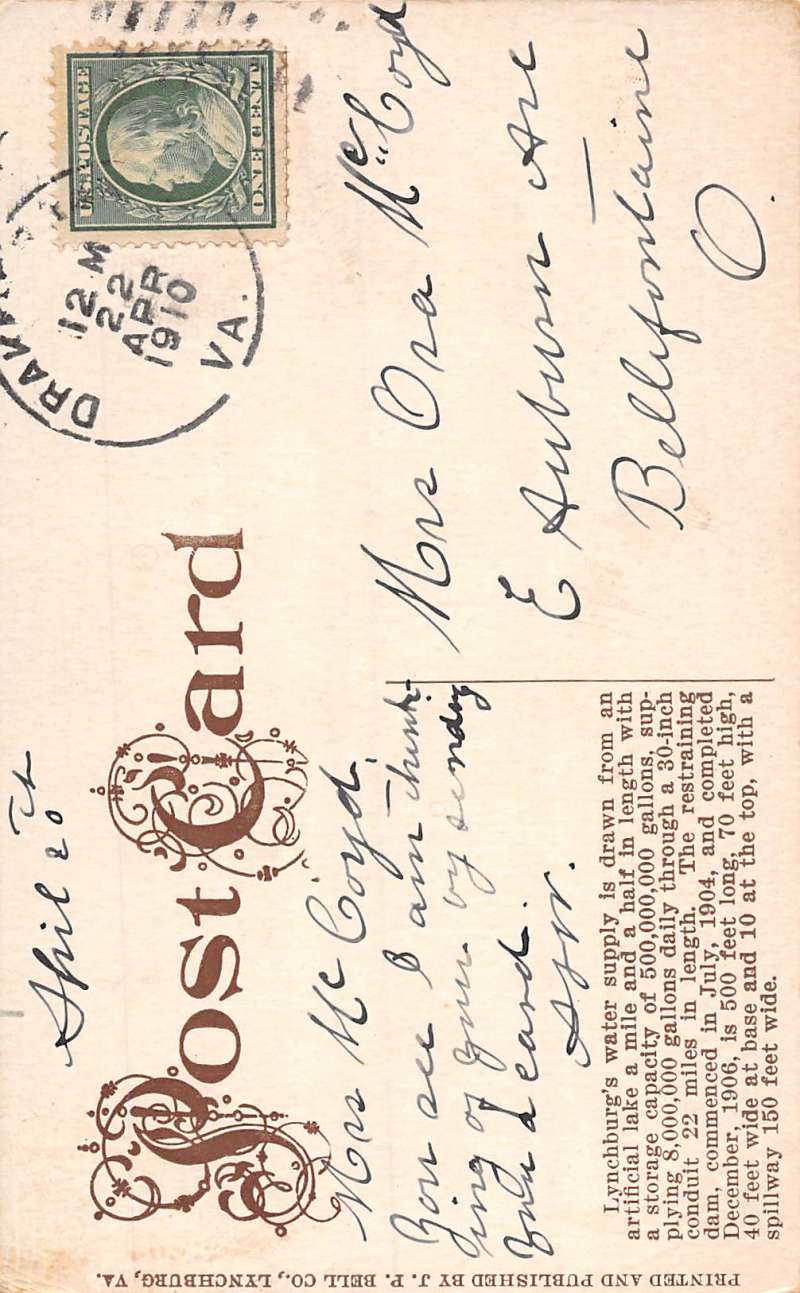 April 20th
Post Card
U.S. POSTAGE
ONE CENT
12 M
22
APR
1910
VA.
Mrs McCoyd.
You see I am think-
ing of you by sending
you a card.
Mrs Ora McCoyd
E Auburn Ave
Bellefontaine
O.
Lynchburg's water supply is drawn from an
artificial lake a mile and a half in length with
a storage capacity of 500,000,000 gallons, sup-
plying 8,000,000 gallons daily through a 30-inch
conduit 22 miles in length. The restraining
dam, commenced in July, 1904, and completed
December, 1906, is 500 feet long, 70 feet high,
40 feet wide at base and 10 at the top, with a
spillway 150 feet wide.
PRINTED AND PUBLISHED BY J. P. BELL CO., LYNCHBURG, VA.